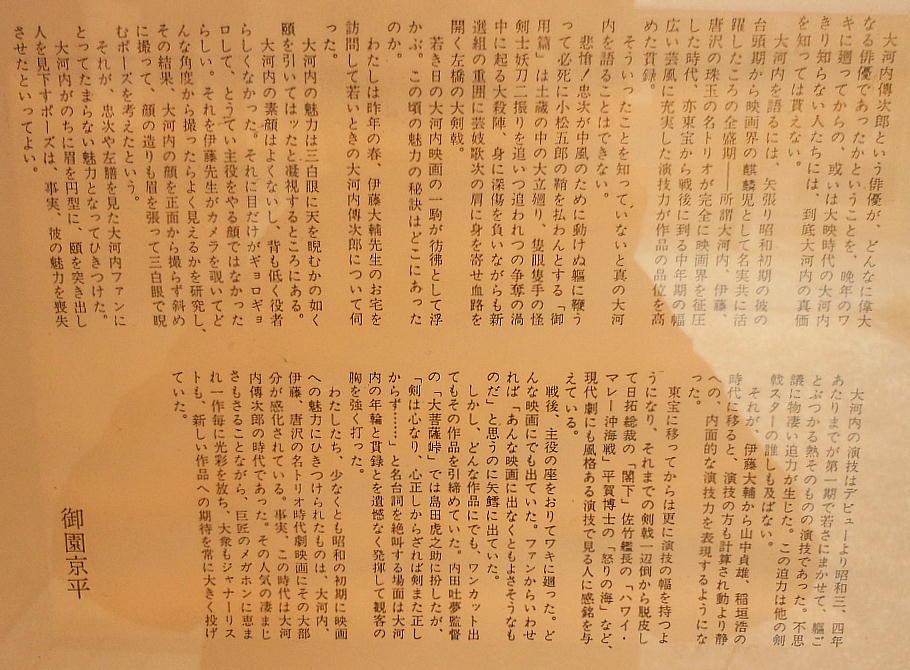 大河内傳次郎という俳優が、どんなに偉大
なる俳優であったかということを、晩年のワ
キに廻ってからの、或いは大映時代の大河内
きり知らない人たちには、到底大河内の真価
を知っては貰えない。
大河内を語るには、矢張り昭和初期の彼の
台頭期から映画界の麒麟児として名実共に活
躍したころの全盛期――所謂大河内、伊藤、
唐沢の珠玉の名トリオが完全に映画界を征圧
した時代、亦東宝から戦後に到る中年期の幅
広い芸風に充実した演技力が作品の品位を高
めた貫録。
そういったことを知っていないと真の大河
内を語ることはできない。
悲愴！忠次が中風のために動けぬ軀に鞭う
って必死に小松五郎の鞘を払わんとする「御
用篇」は土蔵の中の大立廻り、隻眼隻手の怪
剣士妖刀二振りを追いつ追われつの争奪の渦
中に起る大殺陣、身に深傷を負いながらも新
選組の重囲に芸妓歌次の肩に身を寄せ血路を
開く左橋の大剣戟。
若き日の大河内映画の一駒が彷彿として浮
かぶ。この頃の魅力の秘訣はどこにあった
のか。
わたしは昨年の春、伊藤大輔先生のお宅を
訪問して若いときの大河内傳次郎について伺
った。
大河内の魅力は三白眼に天を睨むかの如く
頤を引いてはッたと凝視するところにある。
大河内の素顔はよくないし、背も低く役者
らしくなかった。それに目だけがギョロギョ
ロして、とうてい主役をやる顔ではなかった
らしい。それを伊藤先生がカメラを覗いてど
んな角度から撮ったらよく見えるかを研究し、
その結果、大河内の顔を正面から撮らず斜め
に撮って、顔の造りも眉を張って三白眼で睨
むポーズを考えたという。
それが、忠次や左膳を見た大河内ファンに
とってたまらない魅力となってひきつけた。
大河内がのちに眉を円型に、頤を突き出し
人を見下すポーズは、事実、彼の魅力を喪失
させたといってよい。
大河内の演技はデビューより昭和三、四年
あたりまでが第一期で若さにまかせて、軀ご
とぶつかる熱そのものの演技であった。不思
議に物凄い迫力が生じた。この迫力は他の剣
戟スターの誰しも及ばない。
それが、伊藤大輔から山中貞雄、稲垣浩の
時代に移ると、演技の方も計算され動より静
への、内面的な演技力を表現するようにな
った。
東宝に移ってからは更に演技の幅を持つよ
うになり、それまでの剣戟一辺倒から脱皮し
て日拓総裁の「閣下」佐竹艦長の「ハワイ・
マレー沖海戦」平賀博士の「怒りの海」など、
現代劇にも風格ある演技で見る人に感銘を与
えている。
戦後、主役の座をおりてワキに廻った。ど
んな映画にでも出ていた。ファンからいわせ
れば「あんな映画に出なくともよさそうなも
のだ」と思うのに矢鱈に出ていた。
しかし、どんな作品にでも、ワンカット出
てもその作品を引締めていた。内田吐夢監督
の「大菩薩峠」では島田虎之助に扮したが、
「剣は心なり、心正しからざれば剣また正し
からず……」と名台詞を絶叫する場面は大河
内の年輪と貫録とを遺憾なく発揮して観客の
胸を強く打った。
わたしたち、少なくとも昭和の初期に映画
への魅力にひきつけられたものは、大河内、
伊藤、唐沢の名トリオ時代劇映画にその大部
分が感化されている。事実、この時代は大河
内傳次郎の時代であった。その人気の凄まじ
さもさることながら、巨匠のメガホンに恵ま
れ一作毎に光彩を放ち、大衆もジャーナリス
トも、新しい作品への期待を常に大きく投げ
ていた。
御園京平